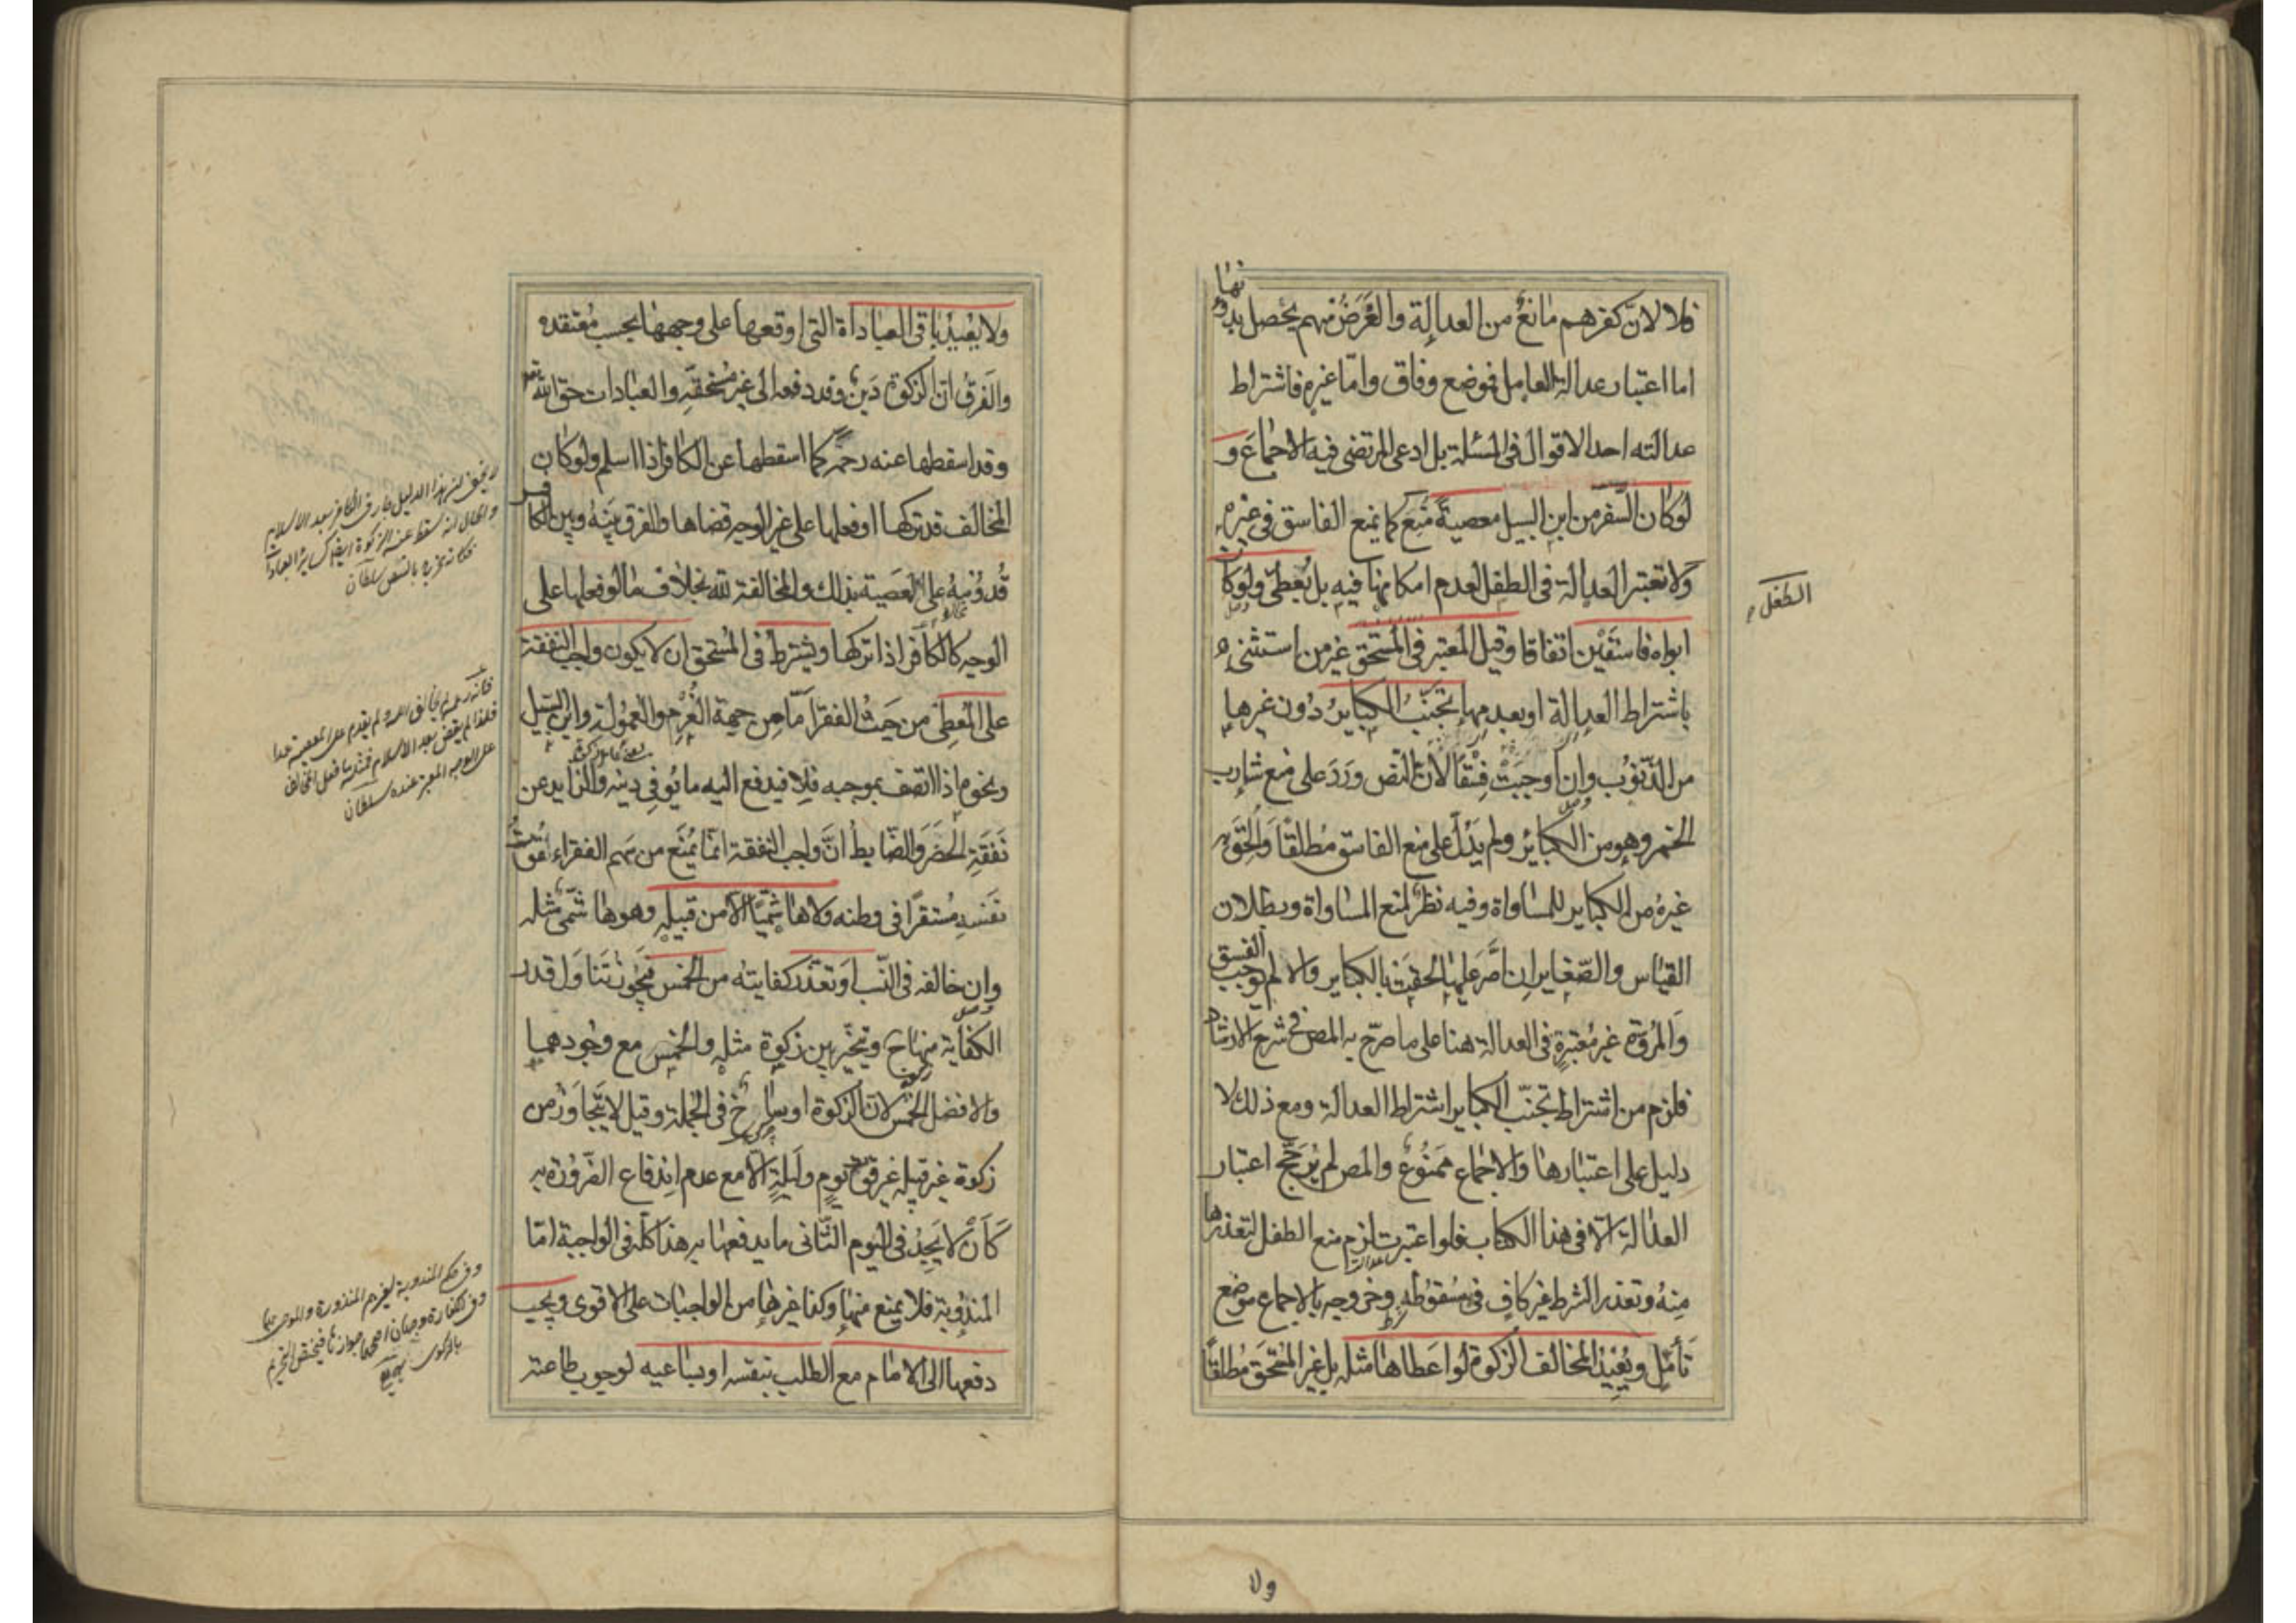 فلا لانّ كفرهم مانع من العدالة والغرض منهم يحصل بدونها
اما اعتبار عدالة العامل فموضع وفاق وامّا غيره فاشتراط
عدالته احد الاقوال فى المسئلة بل ادعى المرتضى فيه الاجماع و
لو كان السّفر من ابن السبيل معصيةً مُنِع كما يمنع الفاسق فى غيره
ولا تعتبر العدالة فى الطفل لعدم امكانها فيه بل يُعطى ولو كان
ابواه فاسقَيْن اتفاقا وقيل المعتبر فى المستحق غير من استثنى
باشتراط العدالة او بعدمها تجنّبُ الكبايرُ دُون غيرها
من الذّنوب وان اوجبَتْ فِسْقًا لانّ النّص وَرَدَ على منع شارب
الخمر وهو من الكبائر ولم يَدُلّ على منع الفاسق مُطلقًا وَاُلحِقَ به
غيرهُ من الكباير للمساواة وفيه نظر لمنع المساواة وبطلان
القياس والصّغاير ان اصَرّ عليها اُلحقت بالكباير والا لم يوجب الفسق
والمُروّة غير مُعتبرةٍ فى العدالة هنا على ما صرّح به المص فى شرح الارشاد
فلزم من اشتراط تجنّب الكباير اشتراط العدالة ومع ذلك لا
دليل على اعتبارها والاجماع ممنُوعٌ والمص لم يُرجّح اعتبار
العدالة الّا فى هذا الكتاب فلو اعتبرت لزم منع الطفل لتعذرها
مِنهُ وتعذر الشرط غير كافٍ فى سُقوُطه وخروجه بالاجماع موضع
تَأمّلٍ ويُعِيْدُ المخالف الزكوة لو اعطاها مثله بل غير المُستحق مُطلقًا
الطفل
ولا
ولا يُعِيْدُ باقى العباداة التى اوقعها على وجهها بحسب مُعتقده
والفرق انّ الزكوة دَين وقد دفعه الى غير مُستحقّه والعبادات حقّ الله تعم
وقد اسقطها عنه رحمةً كما اسقطها عن الكافر اذا اسلم ولو كان
المخالف قد تركها او فعلها على غير الوجه قضاها والفرق بَينَهُ وبين الكافر
قُدُومُهُ على المعصية بذلك والمخالفة لله بخلاف ما لو فعلها على
الوجه كالكافر اذا تركها ويشترط فى المُستحق ان لا يكون واجب النفقة
على المُعطِى من حَيثُ الفقر امّا مِن جهة الغُرْمِ والعمُولة وابن السّبيل
ونحوه اذا اتصف بموجبه فلا فيدفع اليه ما يُوفِى دينه والزايد عن
نَفَقَةِ الحَضَر والضّابطُ انّ واجب النفقة انّما يُمنَع من سهم الفقراء لقُوت
نفسه مُستقرًا فى وطنه ولا هاشِميًّا الّا من قبيله وهو هاشمىّ مثله
وان خالفه فى النّسب او تعذر كفايته من الخمس فيجوز تَناوَل قدر
الكفاية منها ح ويتخيّر بين زكوة مثله والخمس مع وجودهما
والافضل الخمس لان الزكوة اوساخ فى الجملة وقيل لا يَتجاوَزُ من
زكوة غير قبيله غير قوت يومٍ وليلةٍ الّا مع عدم اندفاع الضّرورة به
كَأَنْ لا يَجِدُ فى اليوم الثّانى ما يدفعها به هذا كلّه فى الواجبة امّا
المندُوبة فلا يُمنع منها وكذا غيرها من الواجبات على الاقوى ويجب
دفعها الى الامام مع الطلب بنفسه او بساعيه لوجوب طاعته